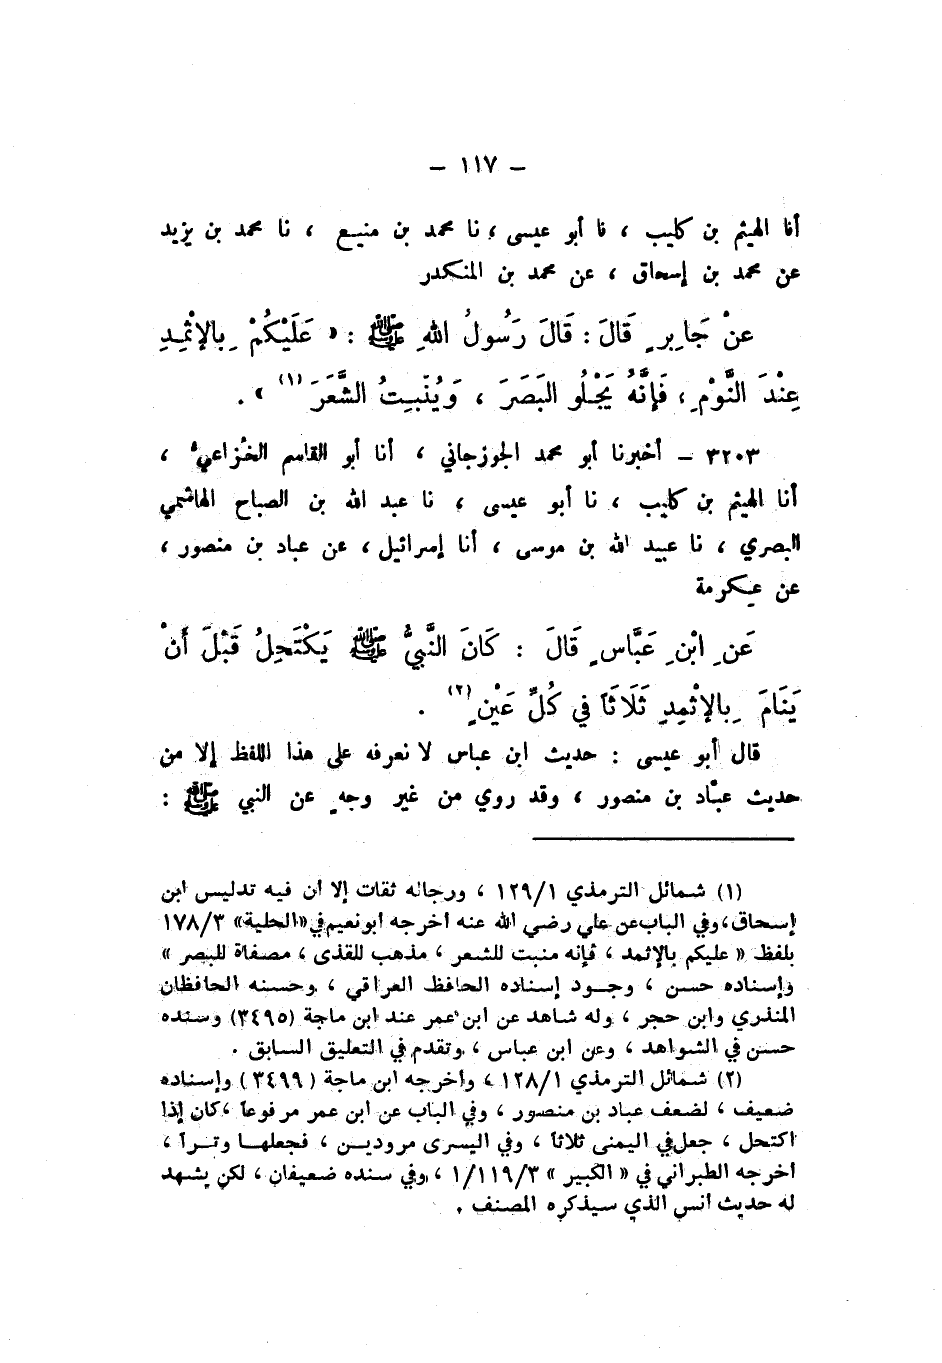 – ١١٧ –
أنا الهيثم بن كليب ، نا أبو عيسى ، نا محمد بن منيع ، نا محمد بن يزيد
عن محمد بن إسحاق ، عن محمد بن المنكدر
عنْ جَابِرٍ قَالَ : قَالَ رَسُولُ اللهِ ﷺ : « عَلَيْكُمْ بِالإثْمِدِ
عِنْدَ النَّوْمِ ، فَإنَّهُ يَجْلُو البَصَرَ ، وَيُنْبِتُ الشَّعَرَ (١) » .
٣٢٠٣ – أخبرنا أبو محمد الجوزجاني ، أنا أبو القاسم الخُزاعيُّ ،
أنا الهيثم بن كليب ، نا أبو عيسى ، نا عبد الله بن الصباح الهاشمي
البصري ، نا عبيد الله بن موسى ، أنا إسرائيل ، عن عباد بن منصور ،
عن عِكرمة
عَنِ ابْنِ عَبَّاسٍ قَالَ : كَانَ النَّبِيُّ ﷺ يَكْتَحِلُ قَبْلَ أَنْ
يَنَامَ بِالإثْمِدِ ثَلَاثَاً فِي كُلِّ عَيْنٍ (٢) .
قال أبو عيسى : حديث ابن عباس لا نعرفه على هذا اللفظ إلا من
حديث عبّاد بن منصور ، وقد روي من غير وجهٍ عن النبي ﷺ :
(١) شمائل الترمذي ١/١٢٩ ، ورجاله ثقات إلا أن فيه تدليس ابن
إسحاق ، وفي الباب عن علي رضي الله عنه أخرجه أبو نعيم في «الحلية» ٣/١٧٨
بلفظ « عليكم بالإثمد ، فإنه منبت للشعر ، مذهب للقذى ، مصفاة للبصر »
وإسناده حسن ، وجود إسناده الحافظ العراقي ، وحسنه الحافظان
المنذري وابن حجر ، وله شاهد عن ابن عمر عند ابن ماجة (٣٤٩٥) وسنده
حسن في الشواهد ، وعن ابن عباس ، وتقدم في التعليق السابق .
(٢) شمائل الترمذي ١/١٢٨ ، وأخرجه ابن ماجة ( ٣٤٩٩ ) وإسناده
ضعيف ، لضعف عباد بن منصور ، وفي الباب عن ابن عمر مرفوعاً ، كان إذا
اكتحل ، جعل في اليمنى ثلاثاً ، وفي اليسرى مرودين ، فجعلها وتراً ،
أخرجه الطبراني في « الكبير » ١/١١٩/٣ ، وفي سنده ضعيفان ، لكن يشهد
له حديث أنس الذي سيذكره المصنف .